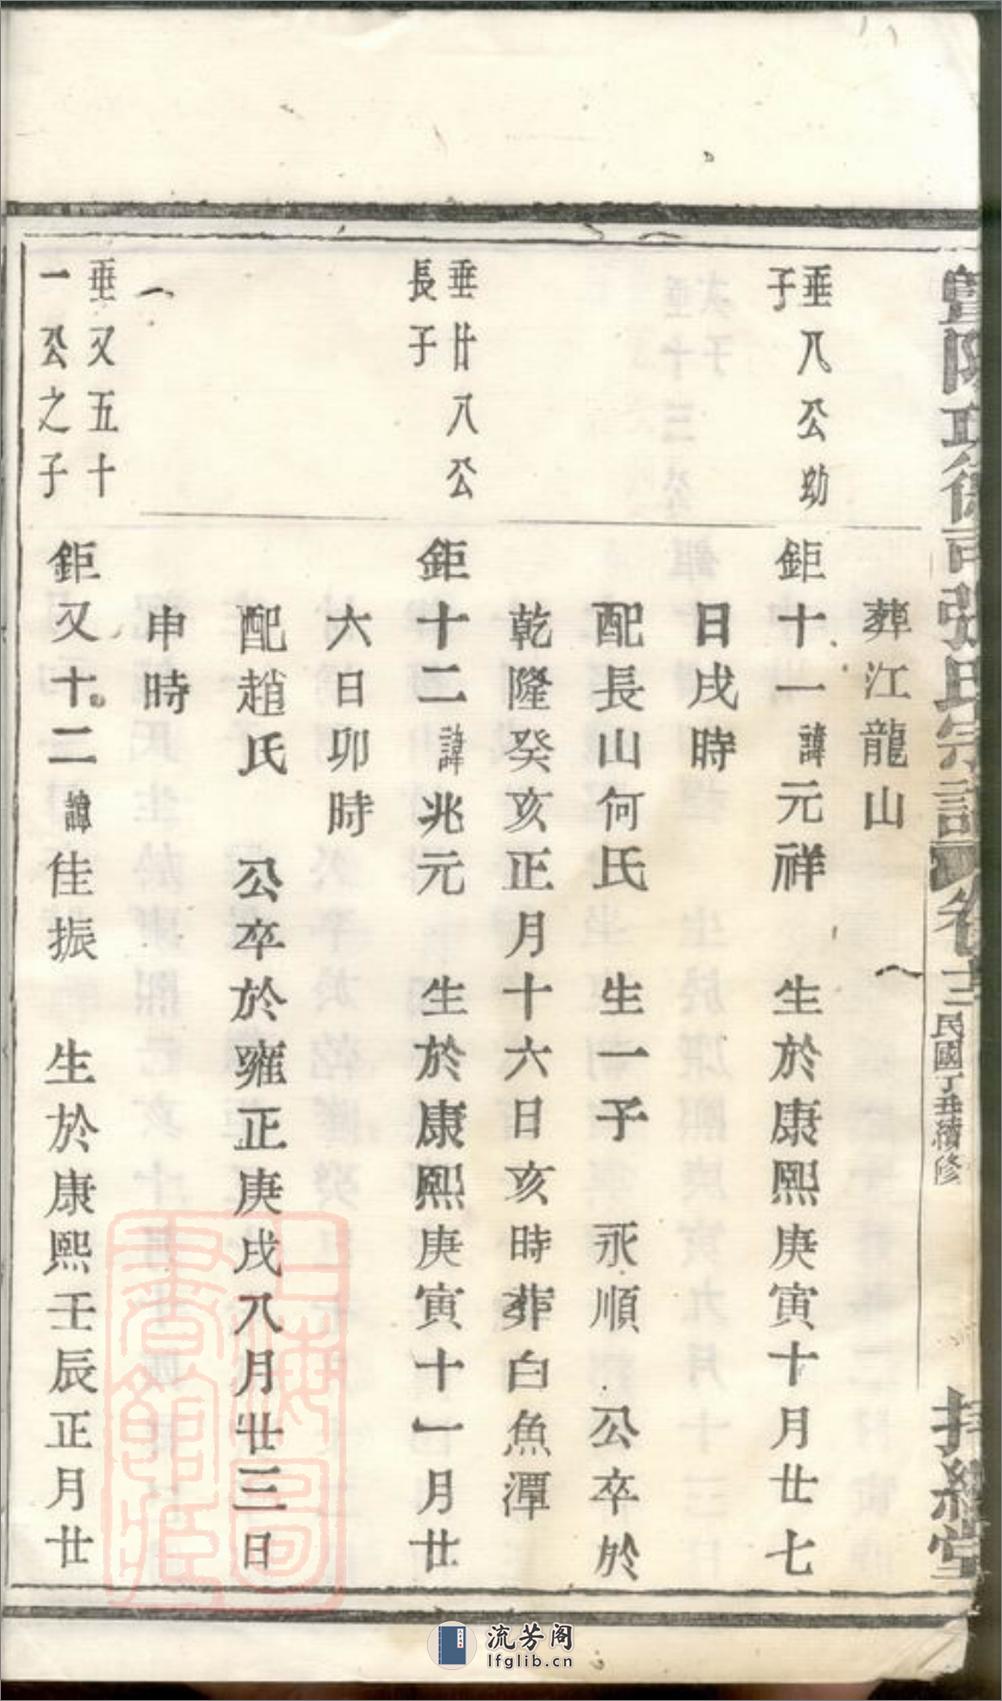 張氏宗譜
卷
三
民國丁丑續修
堂
葬江龍山
垂八公助
子
鉅十一諱元祥 生於康熙庚寅十月廿七
日戌時
配長山何氏 生一子 永順 公卒於
乾隆癸亥正月十六日亥時葬白魚潭
垂廿八公
長子
鉅十二諱兆元 生於康熙庚寅十一月廿
六日卯時
配趙氏 公卒於雍正庚戌八月廿三日
申時
垂又五十
一公之子
鉅又十二諱佳振 生於康熙壬辰正月廿
上海圖書館藏
流芳阁
lfglib.cn